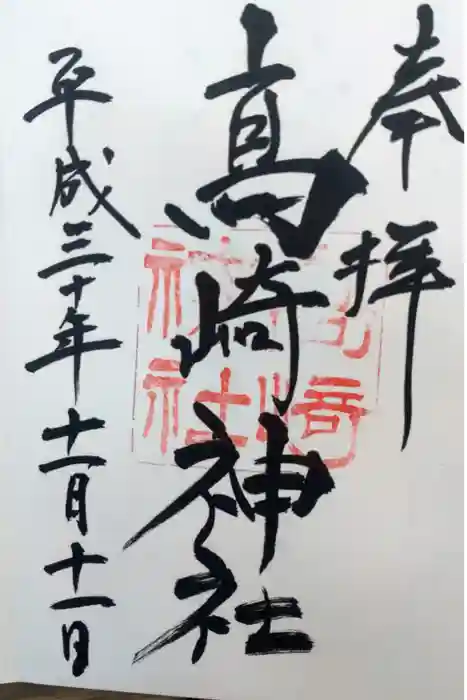 奉拝
高崎神社
平成三十年十一月十一日
高崎
神社